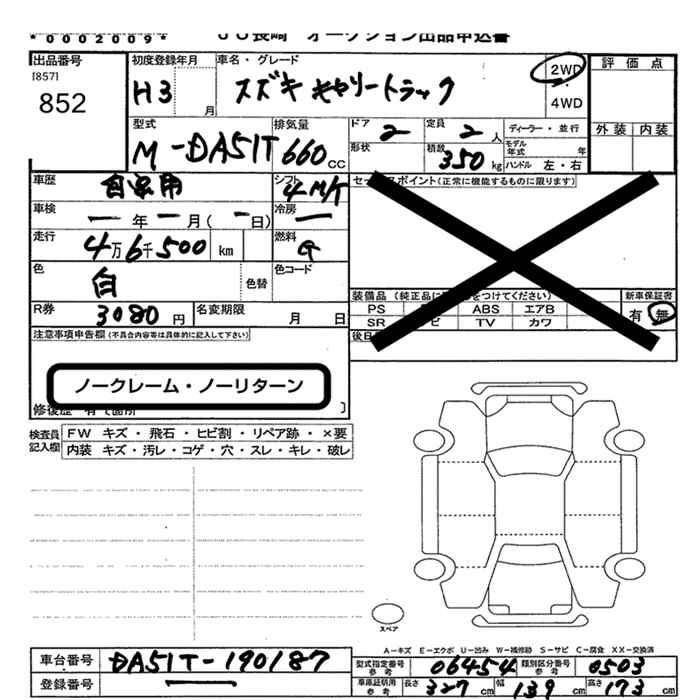 *0002009*
JU長崎 オークション出品申込書
出品番号
[857]
852
初度登録年月
H3
月
車名・グレード
スズキ キャリートラック
2WD
・
4WD
評価点
外装 内装
型式
M-DA51T
排気量
660
CC
ドア
2
定員
2
人
ディーラー・並行
形状
積載
350
kg
モデル年式
年
ハンドル 左・右
車歴
自家用
シフト
4 M/T
車検
一年一月(一日)
冷房
一
走行
4万6千500
km
燃料
G
色
白
色替
色コード
R券
3080円
名変期限
月 日
セールスポイント(正常に機能するものに限ります)
装備品(純正品に
をつけてください)
新車保証書
有・無
PS
ABS
エアB
SR
ビ
TV
カワ
後日
注意事項申告欄(不具合内容等は具体的に記入して下さい)
ノークレーム・ノーリターン
修復歴 有て箇所
検査員
記入欄
FW キズ・飛石・ヒビ割・リペア跡・×要
内装 キズ・汚レ・コゲ・穴・スレ・キレ・破レ
スペア
A-キズ E-エクボ U-凹み W-補修跡 S-サビ C-腐食 XX-交換済
車台番号
DA51T-190187
登録番号
型式指定番号
参考
06454
類別区分番号
参考
0503
車庫証明用
参考
長さ
327
cm
幅
139
cm
高さ
173
cm